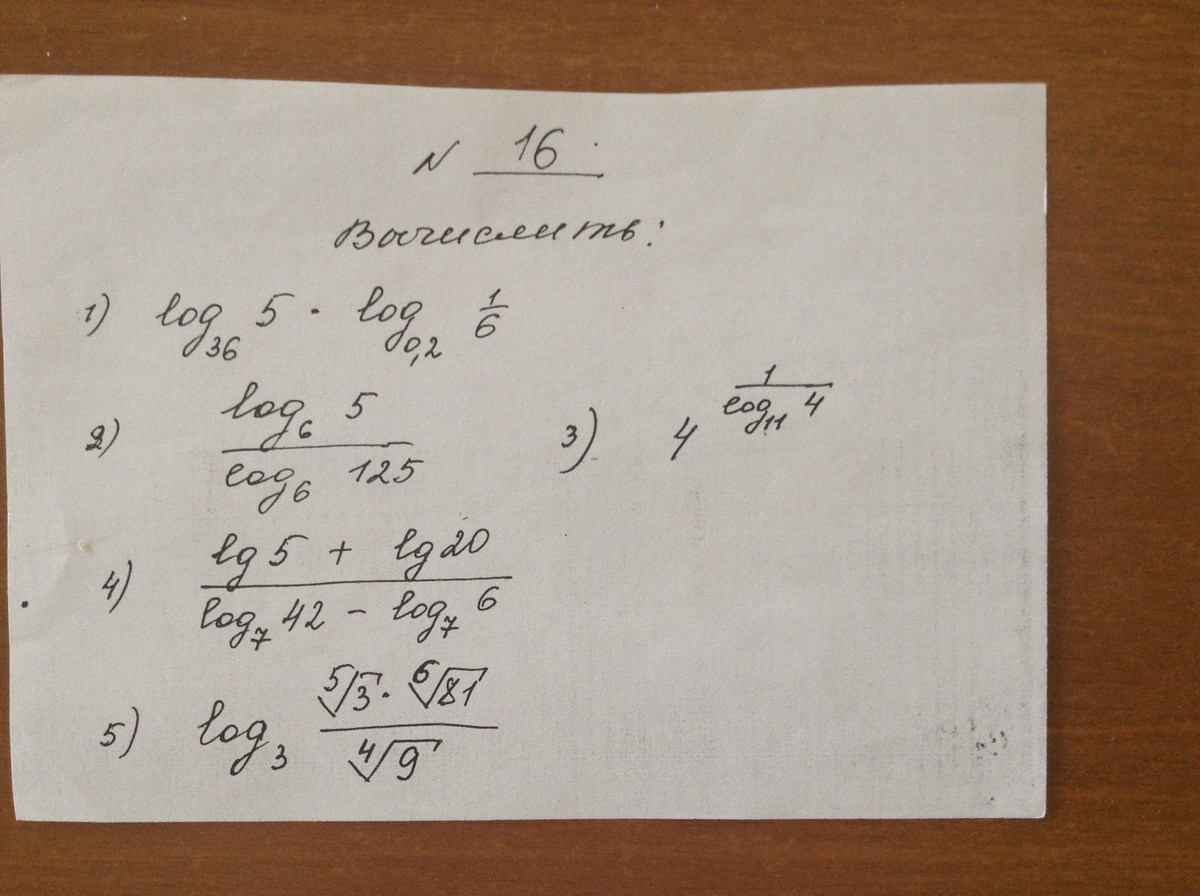 N 16
Вычислить:
1) log₃₆ 5 · log₀,₂ 1/6
2) log₆ 5 / log₆ 125
3) 4^(1/log₁₁ 4)
4) (lg 5 + lg 20) / (log₇ 42 - log₇ 6)
5) log₃ (⁵√3 · ⁶√81) / ⁴√9